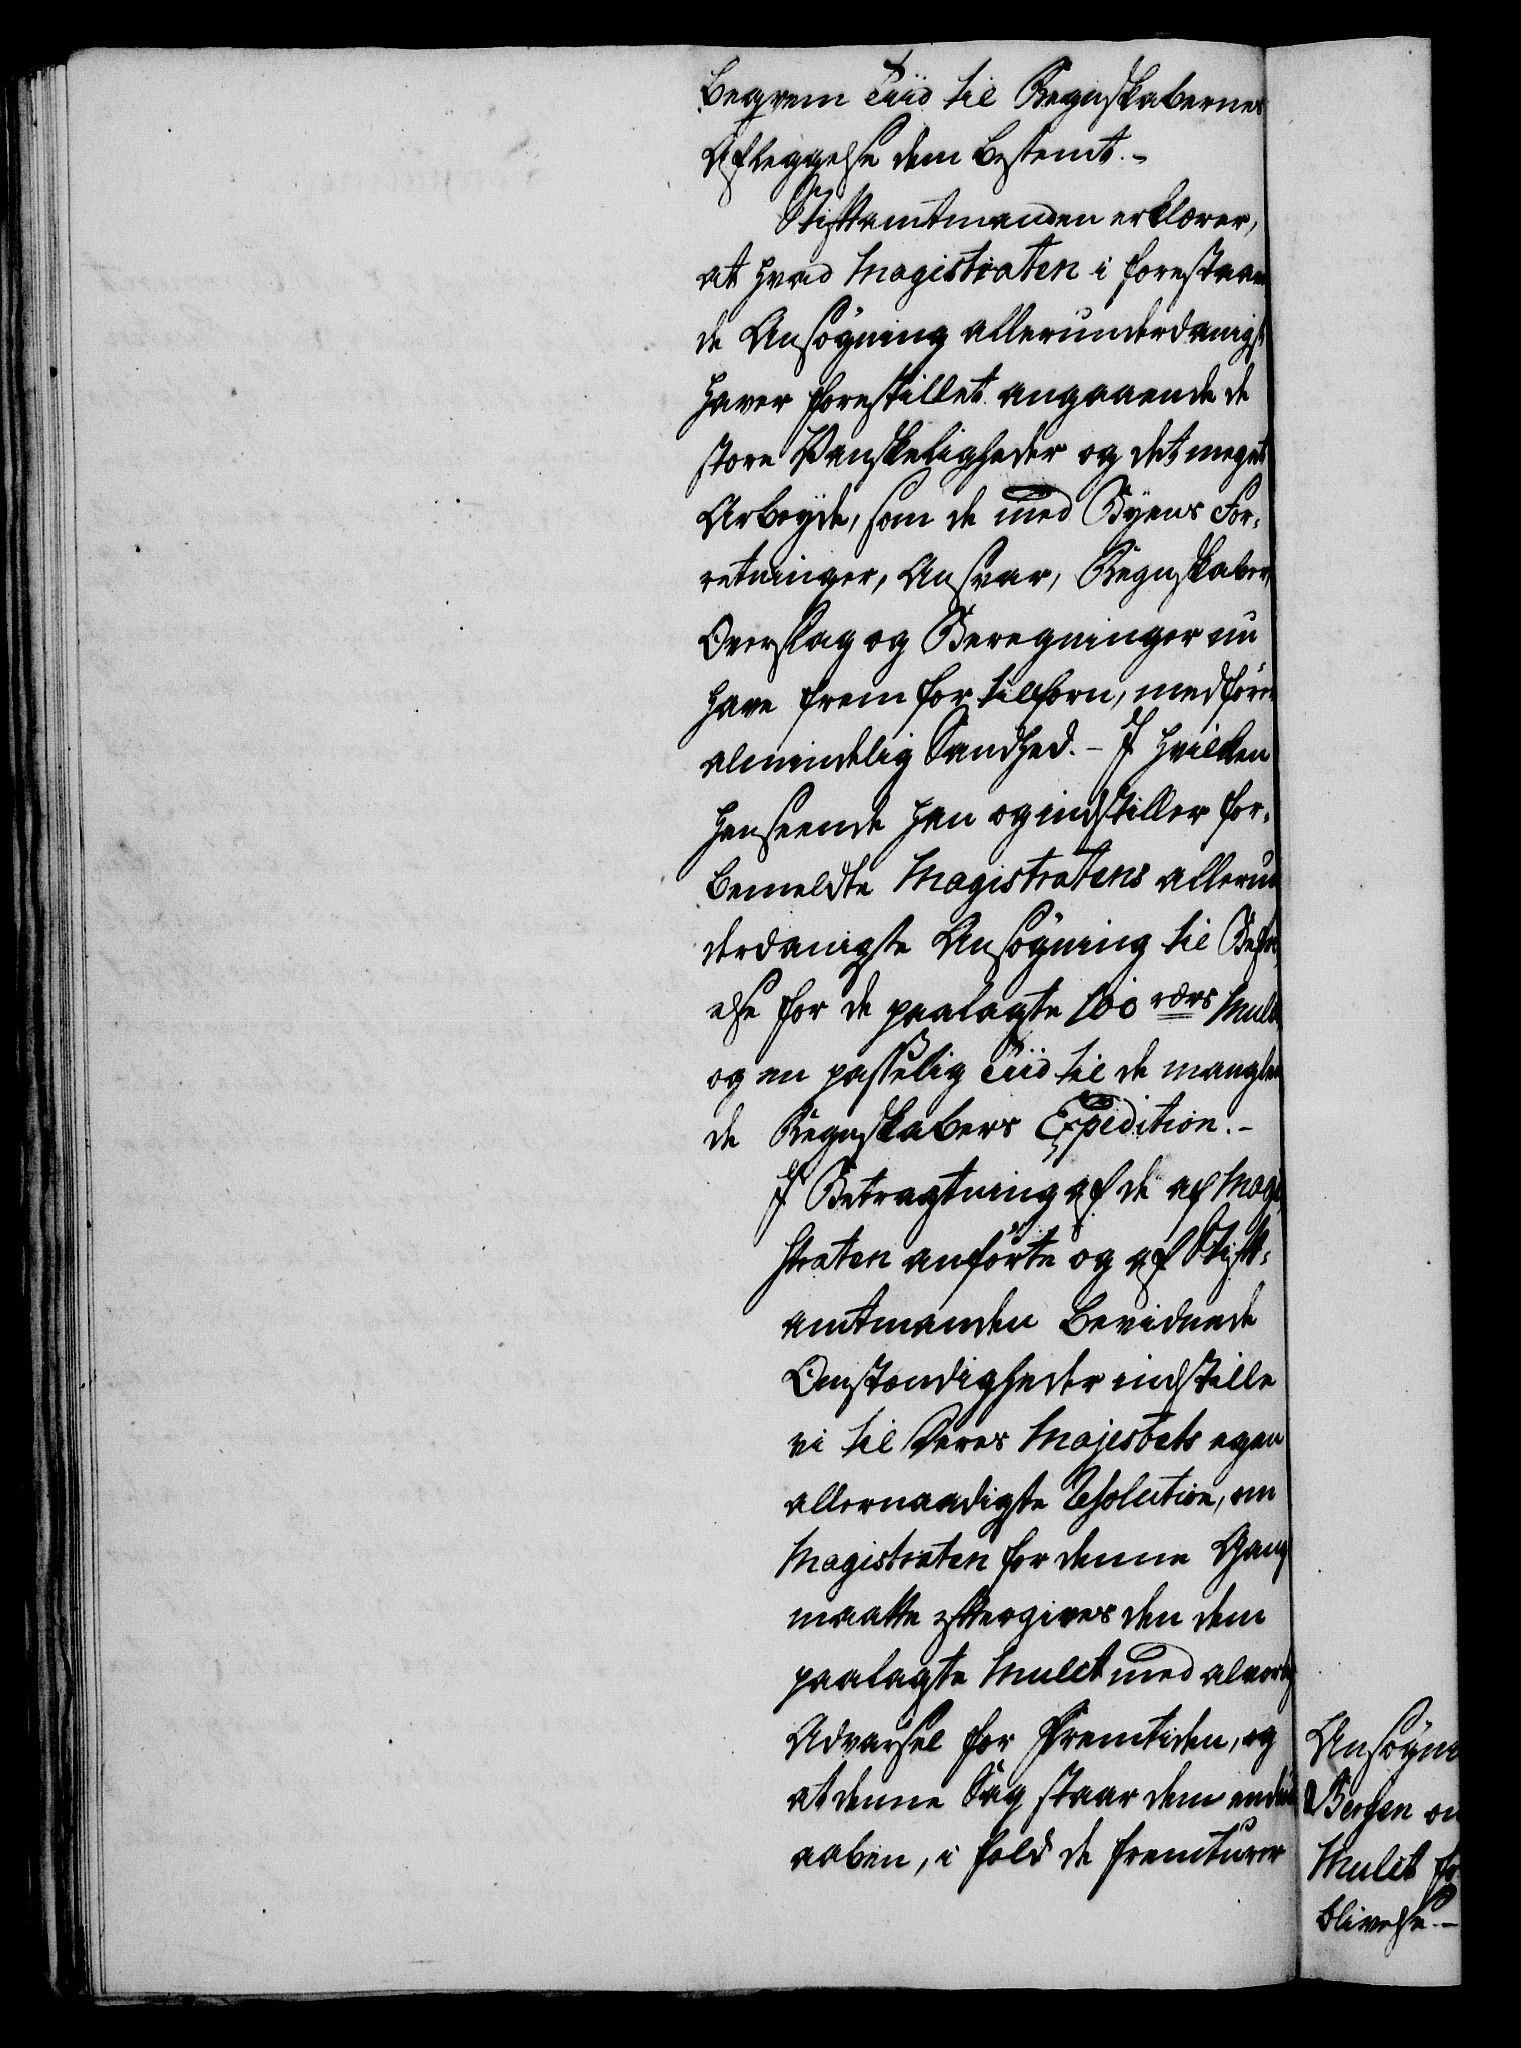 beqvem Tiid til Regnskabernes
Aflæggelse dem bestemt. -
Stiftamtmanden erklærer,
at hvad Magistraten i forestaaen
de Ansøgning allerunderdanigst
haver forestillet angaaende de
store Vanskeligheder og det meget
Arbeyde, som de med Byens For¬
retninger, Ansvar, Regnskaber,
Overslag og Beregninger nu
have frem for tilforn, medfører
almindelig Sandhed. - I hvilken
Henseende han og indstiller for¬
bemeldte Magistratens allerun
derdanigste Ansøgning til Befri
else for de paalagte 100 rdrs Mulct
og en passelig Tiid til de manglen
de Regnskabers Expedition. -
I Betragtning af de af Magi
straten anførte og af Stift¬
amtmanden bevidnede
Omstændigheder indstille
vi til Deres Majestæts egen
allernaadigste Resolution, om
Magistraten for denne Gang
maatte eftergives den dem
paalagte Mulct med alvorlig
Advarsel for Fremtiden, og
at denne Sag staar dem endnu
aaben, i fald de fremturer
Ansøgni
Bergen om
Mulct for
blivelse. -